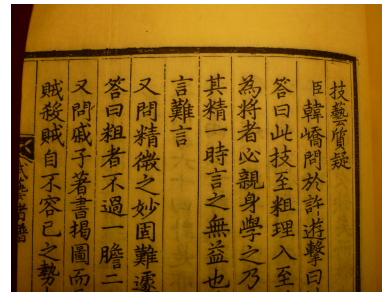 技藝質疑
臣韓嶠問於許遊擊曰
答曰此技至粗理入至
為將者必親身學之乃
其精一時言之無益也
言難言
又問精微之妙固難遽
答曰粗者不過一膽二
又問戚子著書揭圖而
賊殺賊自不容已之勢
武藝諸譜